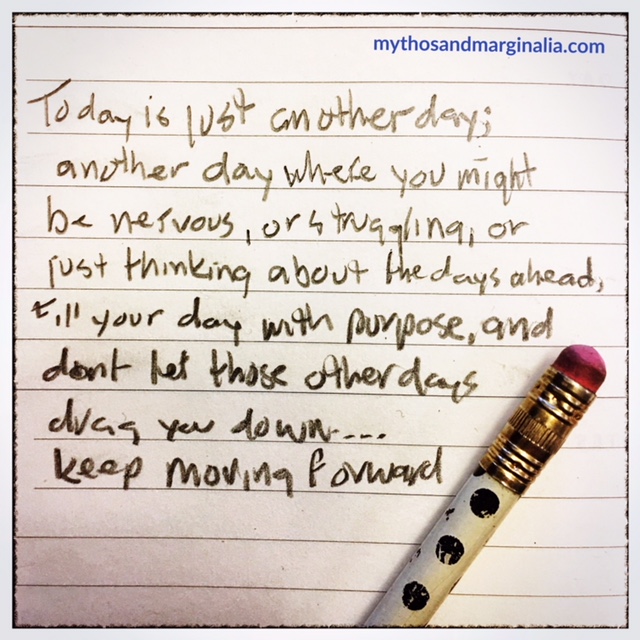 mythosandmarginalia.com
Today is just another day;
another day where you might
be nervous, or struggling, or
just thinking about the days ahead,
fill your day with purpose, and
dont let those other days
drag you down...
keep moving forward